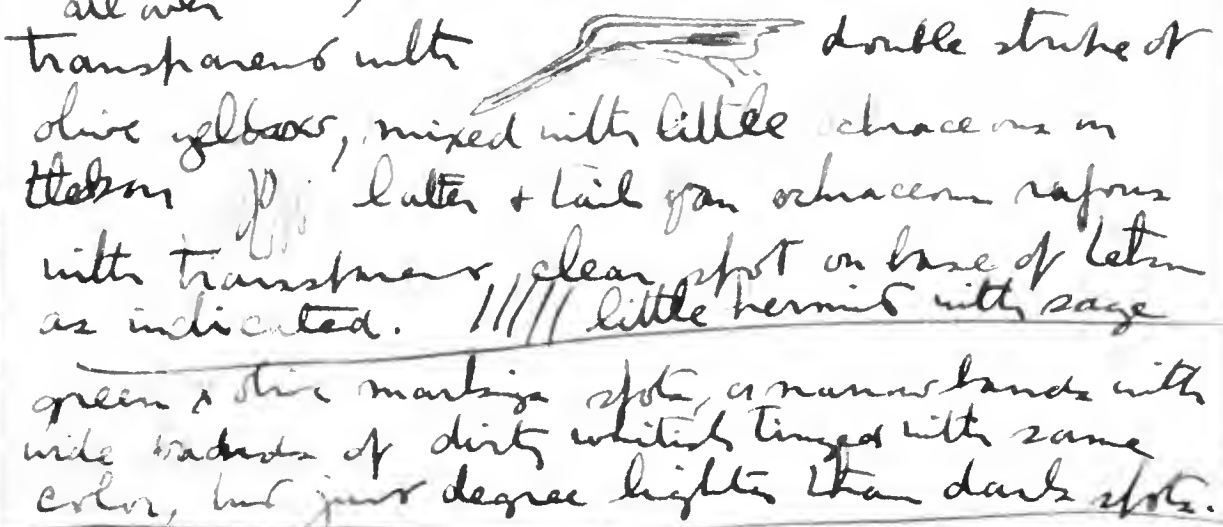 all over
transparent with double stripe of
olive yellow, mixed with little ochraceous on
telson latter + tail fan ochraceous rufous
with transparent, clear spot on base of telson
as indicated. ///// little hermit with sage
green & olive markings spots, or narrow bands with
wide of dirty whitish tinged with same
color, but just degree lighter than dark spots.